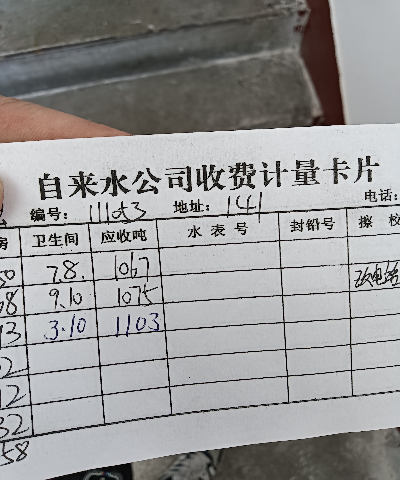 自来水公司收费计量卡片
编号: 111 地址: 141 电话:
房 卫生间 应收吨 水表号 封铅号 擦 校
50 7.8. 1067
68 9.10 1075
13 3.10 1103
02
12
32
58